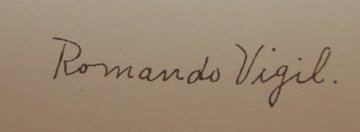 Romando Vigil.